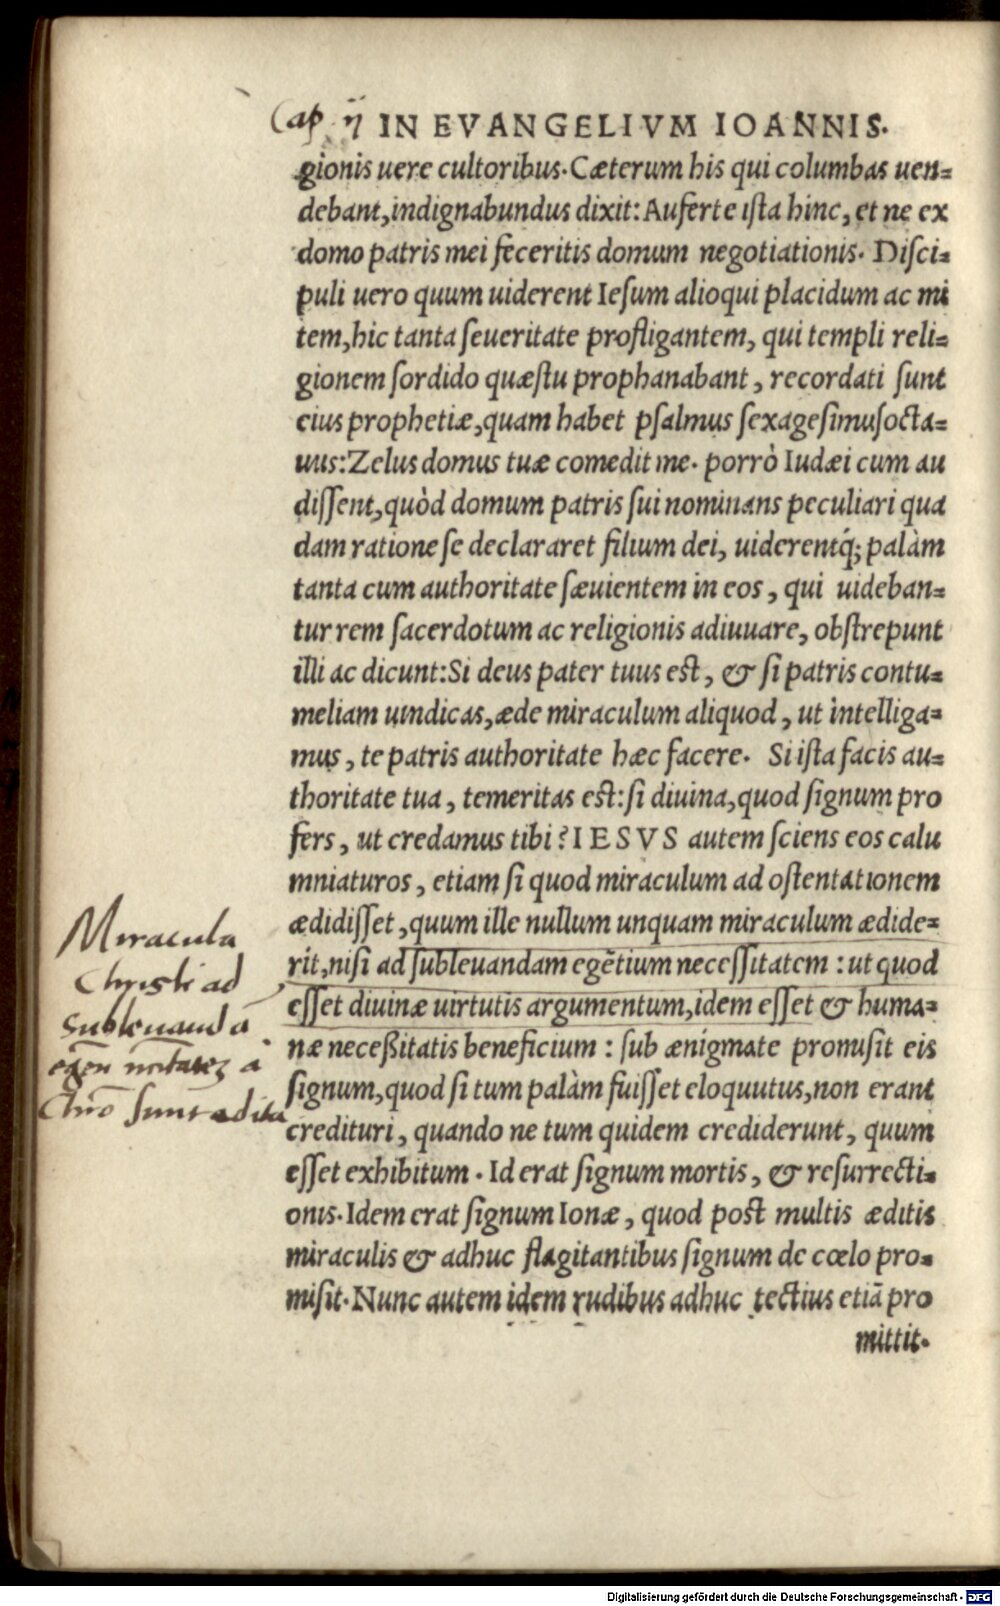 Cap ij IN EVANGELIVM IOANNIS.
gionis uere cultoribus. Cæterum his qui columbas uen-
debant, indignabundus dixit: Auferte ista hinc, et ne ex
domo patris mei feceritis domum negotiationis. Disci-
puli uero quum uiderent Iesum alioqui placidum ac mi
tem, hic tanta seueritate profligantem, qui templi reli-
gionem sordido quæstu prophanabant, recordati sunt
eius prophetiæ, quam habet psalmus sexagesimusocta-
uus: Zelus domus tuæ comedit me. porrò Iudæi cum au
dissent, quòd domum patris sui nominans peculiari qua
dam ratione se declararet filium dei, uiderentq́; palàm
tanta cum authoritate sæuientem in eos, qui uideban-
tur rem sacerdotum ac religionis adiuuare, obstrepunt
illi ac dicunt: Si deus pater tuus est, & si patris contu-
meliam uindicas, æde miraculum aliquod, ut intelliga-
mus, te patris authoritate hæc facere. Si ista facis au-
thoritate tua, temeritas est: si diuina, quod signum pro
fers, ut credamus tibi? IESVS autem sciens eos calu
mniaturos, etiam si quod miraculum ad ostentationem
ædidisset, quum ille nullum unquam miraculum ædide-
rit, nisi ad subleuandam egētium necessitatem: ut quod
esset diuinæ uirtutis argumentum, idem esset & huma-
næ neceßitatis beneficium: sub ænigmate promisit eis
signum, quod si tum palàm fuisset eloquutus, non erant
credituri, quando ne tum quidem crediderunt, quum
esset exhibitum. Id erat signum mortis, & resurrecti-
onis. Idem erat signum Ionæ, quod post multis æditis
miraculis & adhuc flagitantibus signum de cœlo pro-
misit. Nunc autem idem rudibus adhuc tectius etiā pro
mittit.
Miracula
Christi ad
subleuand ā
egen à
Chrō sunt ædita
Digitalisierung gefördert durch die Deutsche Forschungsgemeinschaft - DFG